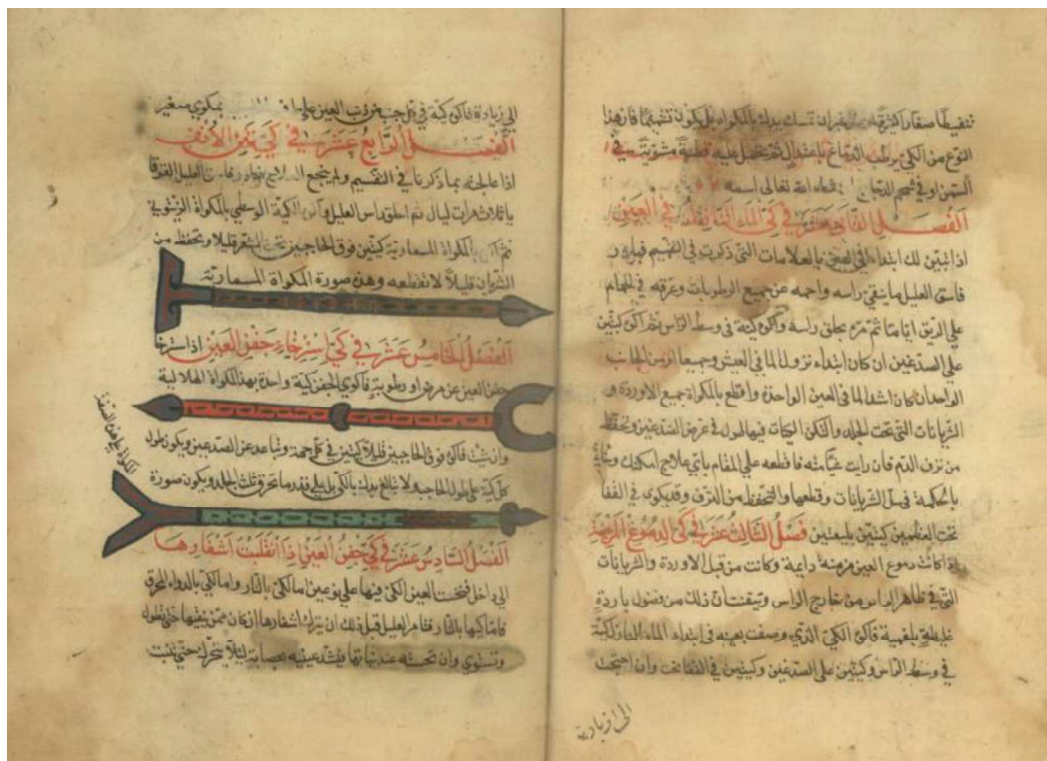 تنقيطا صغارا كثيرة من غير ان تمسك يدك بالمكواة بل يكون تنقيطها فان هذا
النوع من الكي يرطب الدماغ باعتدال ثم تحمل عليه قطنة مشربة في
السمن او في شحم الدجاج ان شاء الله تعالى اسمه
الفصل الثاني عشر في كي الماء النازل في العين
اذا تبين لك ابتداء الماء في العين بالعلامات التي ذكرت في التقسيم فبادر و
فاسق العليل ما ينقي راسه واحمه عن جميع الرطوبات وعرقه في الحمام
علي الريق اياما ثم مره بحلق راسه واكوي كية في وسط الراس ثم اكوي كيتين
علي الصدغين ان كان ابتداء نزول الما في العينين جميعا او من الجانب
الواحد ان كان ابتدا الما في العين الواحدة واقطع بالمكواة جميع الاوردة و
الشريانات التي تحت الجلد ولتكن الكيات فيها طول في عرض الصدغين وتحفظ
من نزف الدم فان رايت شيا منه فاقطعه علي المقام باي علاج امكنك
بالحكمة في سل الشريانات وقطعها والتحفظ من النزف وقد يكوي في القفا
تحت العظمين كيتين بليغتين فصل الثالث عشر في كي الدموع المزمنة
اذا كانت دموع العين مزمنة دايمة وكانت من قبل الاوردة والشريانات
التي في ظاهر الراس من خارج الراس وتيقنت ان ذلك من فضول باردة
غليظة بلغمية فاكوي الكي الذي وصفت بعينه في ابتداء الماء النازل كية
في وسط الراس وكيتين علي الصدغين وكيتين في القفا تحت وان احتجت
الى زيادة
الي زيادة فاكوي كية في كل جنب من ذنب العين علي بمكوي صغير
الفصل الرابع عشر في كي نتن الانف
اذا عالجته بما ذكرنا في التقسيم ولم ينجع العلاج فبادر فاسق العليل القوقا
يا ثلاث ليال ثم احلق راس العليل واكوي الكية الوسطي بالمكواة الزيتونية
ثم اكوي بالمكواة المسمارية كيتين فوق الحاجبين تحت الشعر قليلا وتحفظ من
الشريان قليلا لا تقطعه وهذه صورة المكواة المسمارية
الفصل الخامس عشر في كي استرخاء جفن العين اذا استرخا
جفن العين عن مرض او رطوبة فاكوي الجفن كية واحدة بهذه المكواة الهلالية
وان شيت فاكوي فوق الحاجبين قليلا كيتين في كل جهة وتباعد عن الصدغين ويكون طول
كل كية علي طول الحاجب ولا تبالغ يدك بالكي بل علي قدر ما تحرق ثلث الجلد ويكون صورة
المكواة علي هذه الصورة
الفصل السادس عشر في كي جفن العين اذا انقلبت اشفارها
الي داخل فنخست العين الكي فيها علي نوعين اما الكي بالنار واما الكي بالدواء المحرق
فاما كيها بالنار فتامر العليل قبل ذلك ان يترك اشفارها ان كان ممن ينتفها حتي تطول
وتستوي وان نخسته عند نباتها فتشد عينيه بعصابة ليلا يتحرك حتي تنبت